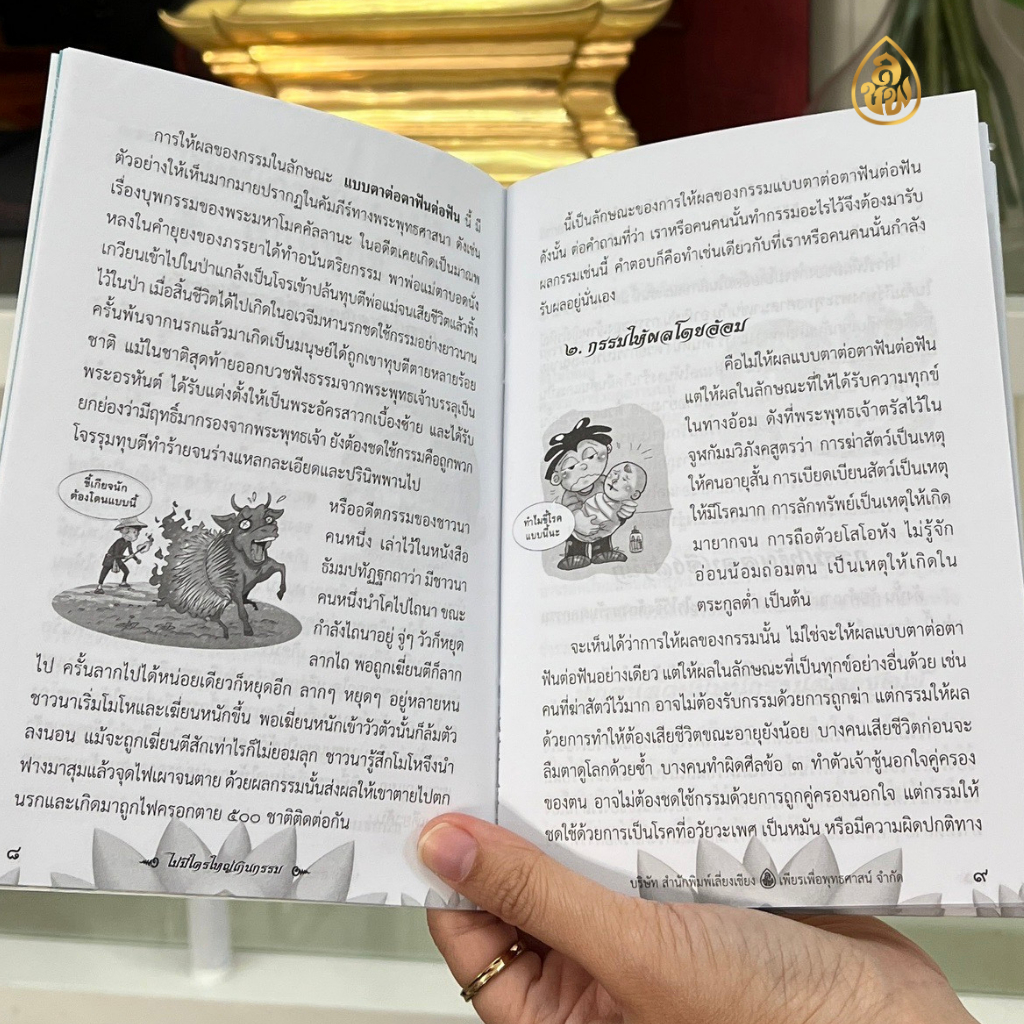 การให้ผลของกรรมในลักษณะ แบบตาต่อตาฟันต่อฟัน นี้ มี
ตัวอย่างให้เห็นมากมายปรากฏในคัมภีร์ทางพระพุทธศาสนา ดังเช่น
เรื่องบุพกรรมของพระมหาโมคคัลลานะ ในอดีตเคยเกิดเป็นมาณพ
หลงในคำยุยงของภรรยาได้ทำอนันตริยกรรม พาพ่อแม่ตาบอดนั่ง
เกวียนเข้าไปในป่าแกล้งเป็นโจรเข้าปล้นทุบตีพ่อแม่จนเสียชีวิตแล้วทิ้ง
ไว้ในป่า เมื่อสิ้นชีวิตได้ไปเกิดในอเวจีมหานรกชดใช้กรรมอย่างยาวนาน
ครั้นพ้นจากนรกแล้วมาเกิดเป็นมนุษย์ได้ถูกเขาทุบตีตายหลายร้อย
ชาติ แม้ในชาติสุดท้ายออกบวชฟังธรรมจากพระพุทธเจ้าบรรลุเป็น
พระอรหันต์ ได้รับแต่งตั้งให้เป็นพระอัครสาวกเบื้องซ้าย และได้รับ
ยกย่องว่ามีฤทธิ์มากรองจากพระพุทธเจ้า ยังต้องชดใช้กรรมคือถูกพวก
โจรรุมทุบตีทำร้ายจนร่างแหลกละเอียดและปรินิพพานไป
ขี้เกียจนัก
ต้องโดนแบบนี้
หรืออดีตกรรมของชาวนา
คนหนึ่ง เล่าไว้ในหนังสือ
ธัมมปทัฏฐกถาว่า มีชาวนา
คนหนึ่งนำโคไปไถนา ขณะ
กำลังไถนาอยู่ จู่ๆ วัวก็หยุด
ลากไถ พอถูกเฆี่ยนตีก็ลาก
ไป ครั้นลากไปได้หน่อยเดียวก็หยุดอีก ลากๆ หยุดๆ อยู่หลายหน
ชาวนาเริ่มโมโหและเฆี่ยนหนักขึ้น พอเฆี่ยนหนักเข้าวัวตัวนั้นก็ล้มตัว
ลงนอน แม้จะถูกเฆี่ยนตีสักเท่าไรก็ไม่ยอมลุก ชาวนารู้สึกโมโหจึงนำ
ฟางมาสุมแล้วจุดไฟเผาจนตาย ด้วยผลกรรมนั้นส่งผลให้เขาตายไปตก
นรกและเกิดมาถูกไฟครอกตาย ๕๐๐ ชาติติดต่อกัน
๘
ไม่มีใครใหญ่เกินกรรม
ลิขิง
นี้เป็นลักษณะของการให้ผลของกรรมแบบตาต่อตาฟันต่อฟัน
ดังนั้น ต่อคำถามที่ว่า เราหรือคนคนนั้นทำกรรมอะไรไว้จึงต้องมารับ
ผลกรรมเช่นนี้ คำตอบก็คือทำเช่นเดียวกับที่เราหรือคนคนนั้นกำลัง
รับผลอยู่นั่นเอง
๒. กรรมให้ผลโดยอ้อม
คือไม่ให้ผลแบบตาต่อตาฟันต่อฟัน
แต่ให้ผลในลักษณะที่ให้ได้รับความทุกข์
ในทางอ้อม ดังที่พระพุทธเจ้าตรัสไว้ใน
จูฬกัมมวิภังคสูตรว่า การฆ่าสัตว์เป็นเหตุ
ให้คนอายุสั้น การเบียดเบียนสัตว์เป็นเหตุ
ให้มีโรคมาก การลักทรัพย์เป็นเหตุให้เกิด
มายากจน การถือตัวยโสโอหัง ไม่รู้จัก
อ่อนน้อมถ่อมตน เป็นเหตุให้เกิดใน
ตระกูลต่ำ เป็นต้น
ทำไมขี้โรค
แบบนี้นะ
จะเห็นได้ว่าการให้ผลของกรรมนั้น ไม่ใช่จะให้ผลแบบตาต่อตา
ฟันต่อฟันอย่างเดียว แต่ให้ผลในลักษณะที่เป็นทุกข์อย่างอื่นด้วย เช่น
คนที่ฆ่าสัตว์ไว้มาก อาจไม่ต้องรับกรรมด้วยการถูกฆ่า แต่กรรมให้ผล
ด้วยการทำให้ต้องเสียชีวิตขณะอายุยังน้อย บางคนเสียชีวิตก่อนจะ
ลืมตาดูโลกด้วยซ้ำ บางคนทำผิดศีลข้อ ๓ ทำตัวเจ้าชู้นอกใจคู่ครอง
ของตน อาจไม่ต้องชดใช้กรรมด้วยการถูกคู่ครองนอกใจ แต่กรรมให้
ชดใช้ด้วยการเป็นโรคที่อวัยวะเพศ เป็นหมัน หรือมีความผิดปกติทาง
บริษัท สำนักพิมพ์เลี่ยงเชียง เพียรเพื่อพุทธศาสน์ จำกัด
๙